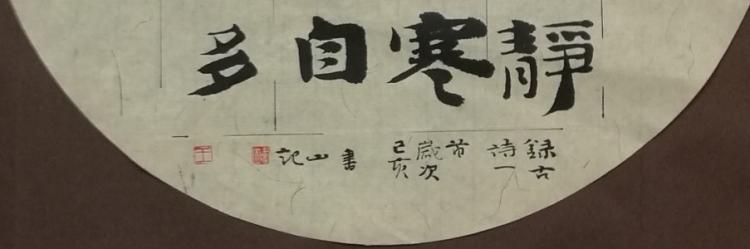 靜寒自多
錄古
詩一
首
歲次
己亥
書
山
記